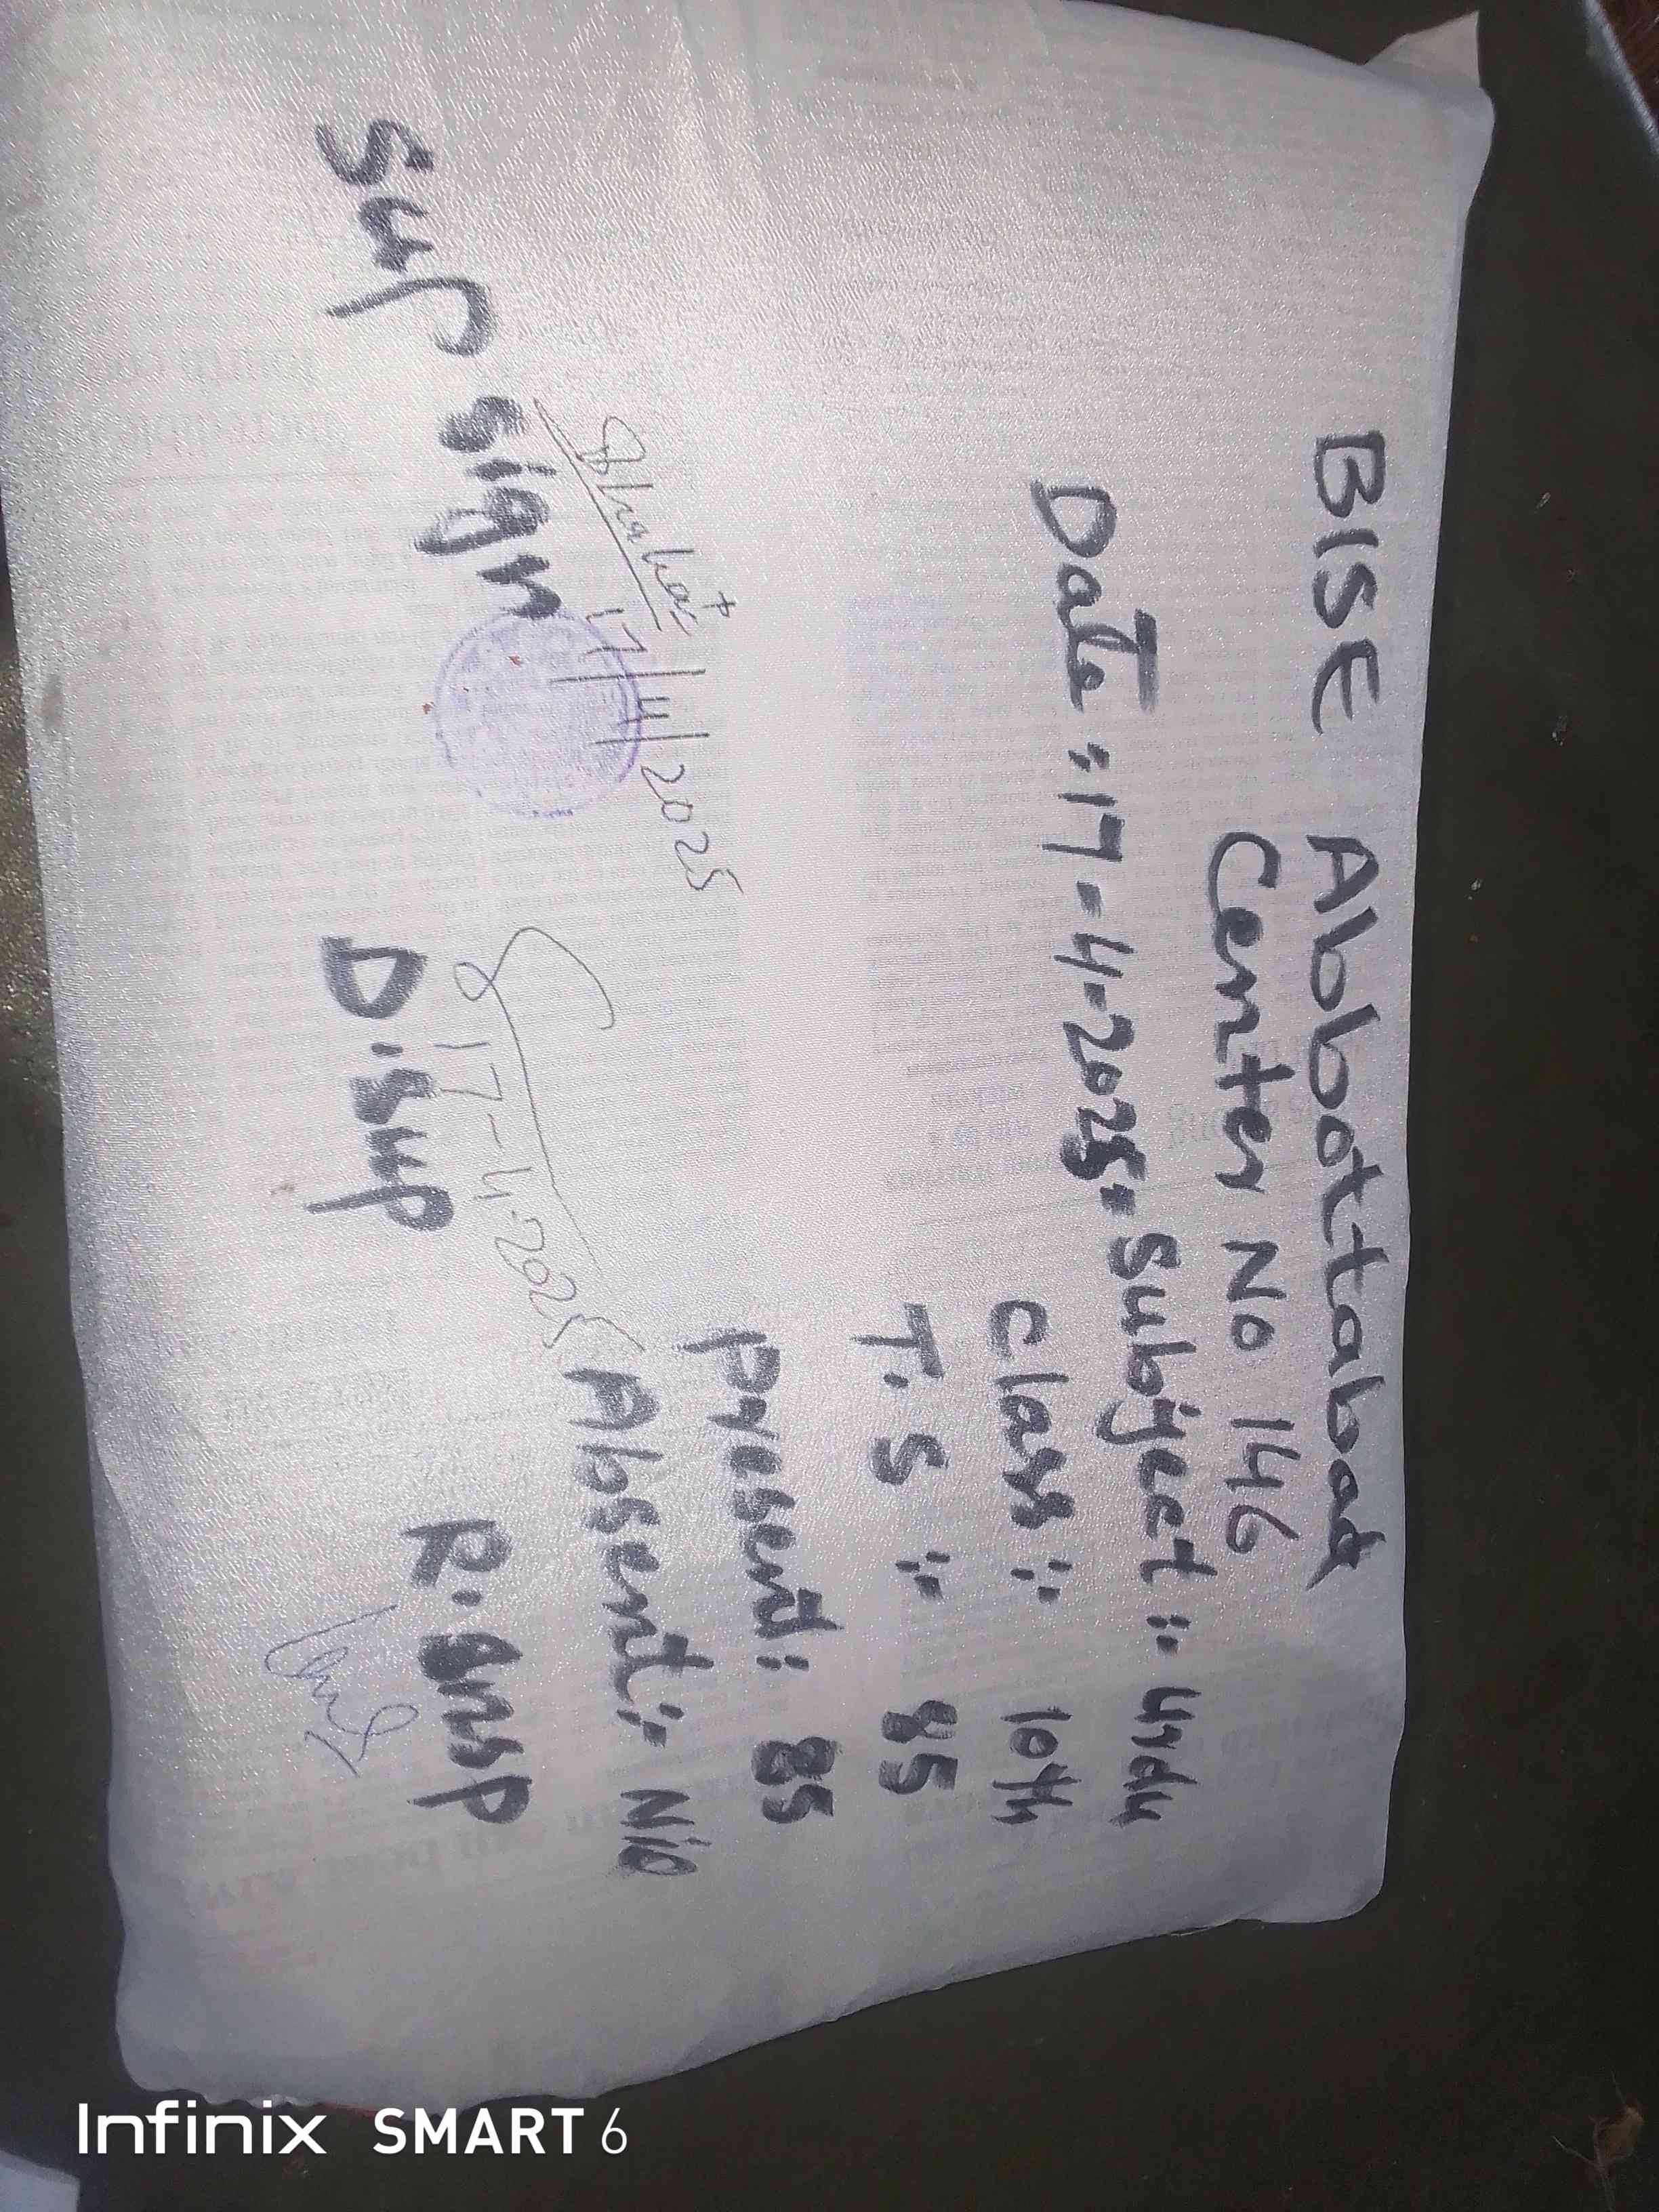 BISE Abbottabad
Center No 146
Date :17-4-2025. Subject :- Urdu
Class :- 10th
T.S :- 85
Present: 85
Absent:- Nil
17/4/2025
Sup sign
17-4-2025
D.Sup
R.Insp
Infinix SMART 6